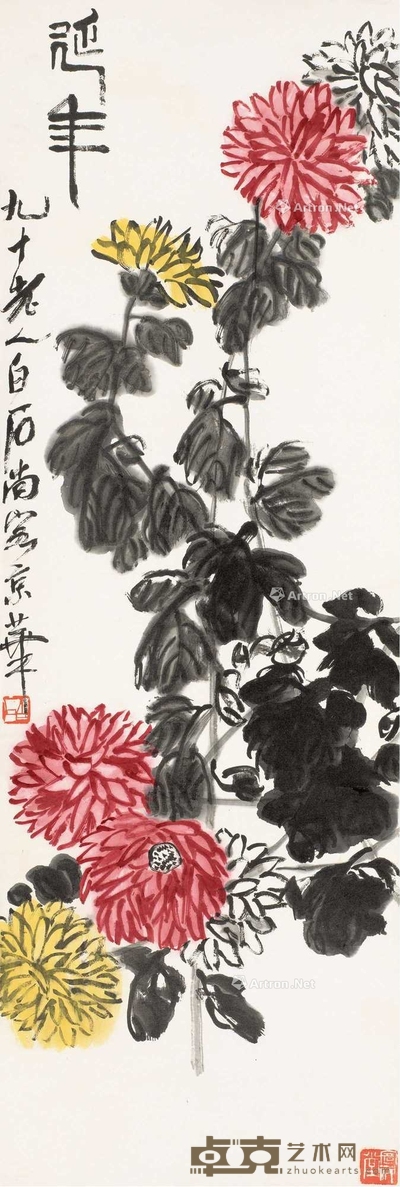 延年
九十老人白石尚客京華
Artron.Net
Artron.Net
Artron.Net
Artron.Net
卓克艺术网
zhuokearts.com